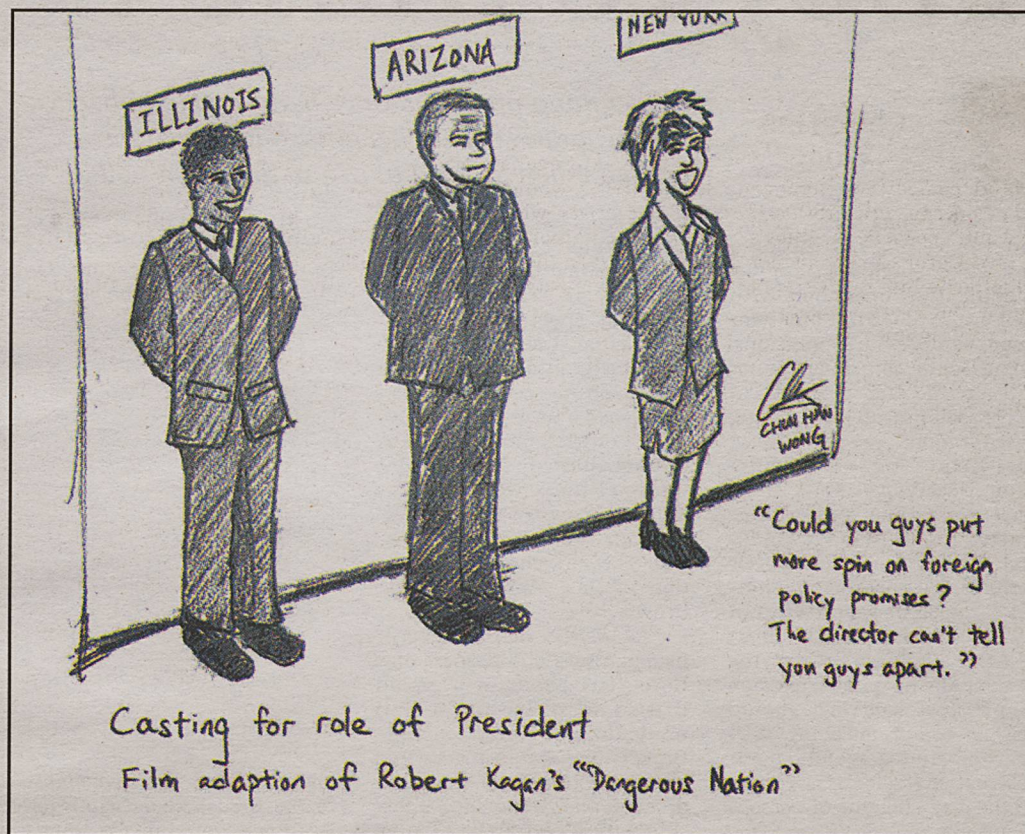 ILLINOIS
ARIZONA
NEW YORK
CHUN HAN
WONG
“Could you guys put
more spin on foreign
policy promises?
The director can't tell
you guys apart.”
Casting for role of President
Film adaption of Robert Kagan's “Dangerous Nation”